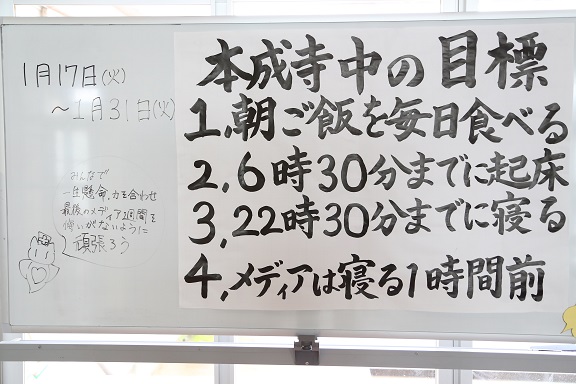 1月17日(火)
～1月31日(火)
みんなで
一生懸命、力を合わせ
最後のメディア週間を
悔いがないように
頑張ろう
本成寺中の目標
1,朝ご飯を毎日食べる
2,6時30分までに起床
3,22時30分までに寝る
4,メディアは寝る1時間前